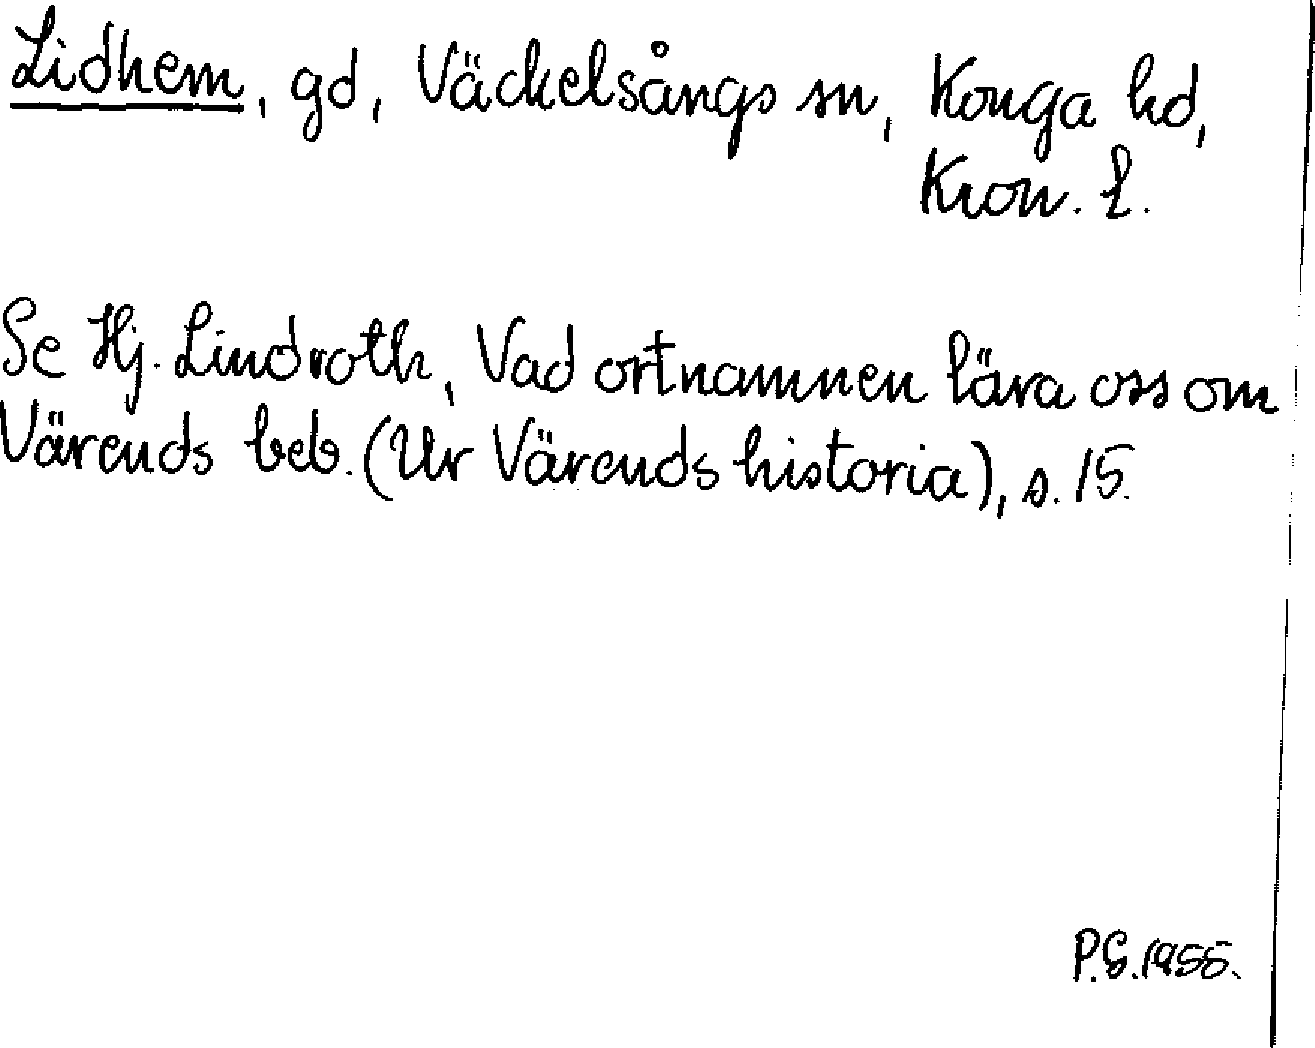 Lidhem, gd, Väckelsångs sn, Konga hd,
Kron. l.
Se Hj. Lindroth, Vad ortnamnen lära oss om
Värends beb. (Ur Värends historia), s. 15.
P.G. 1955.